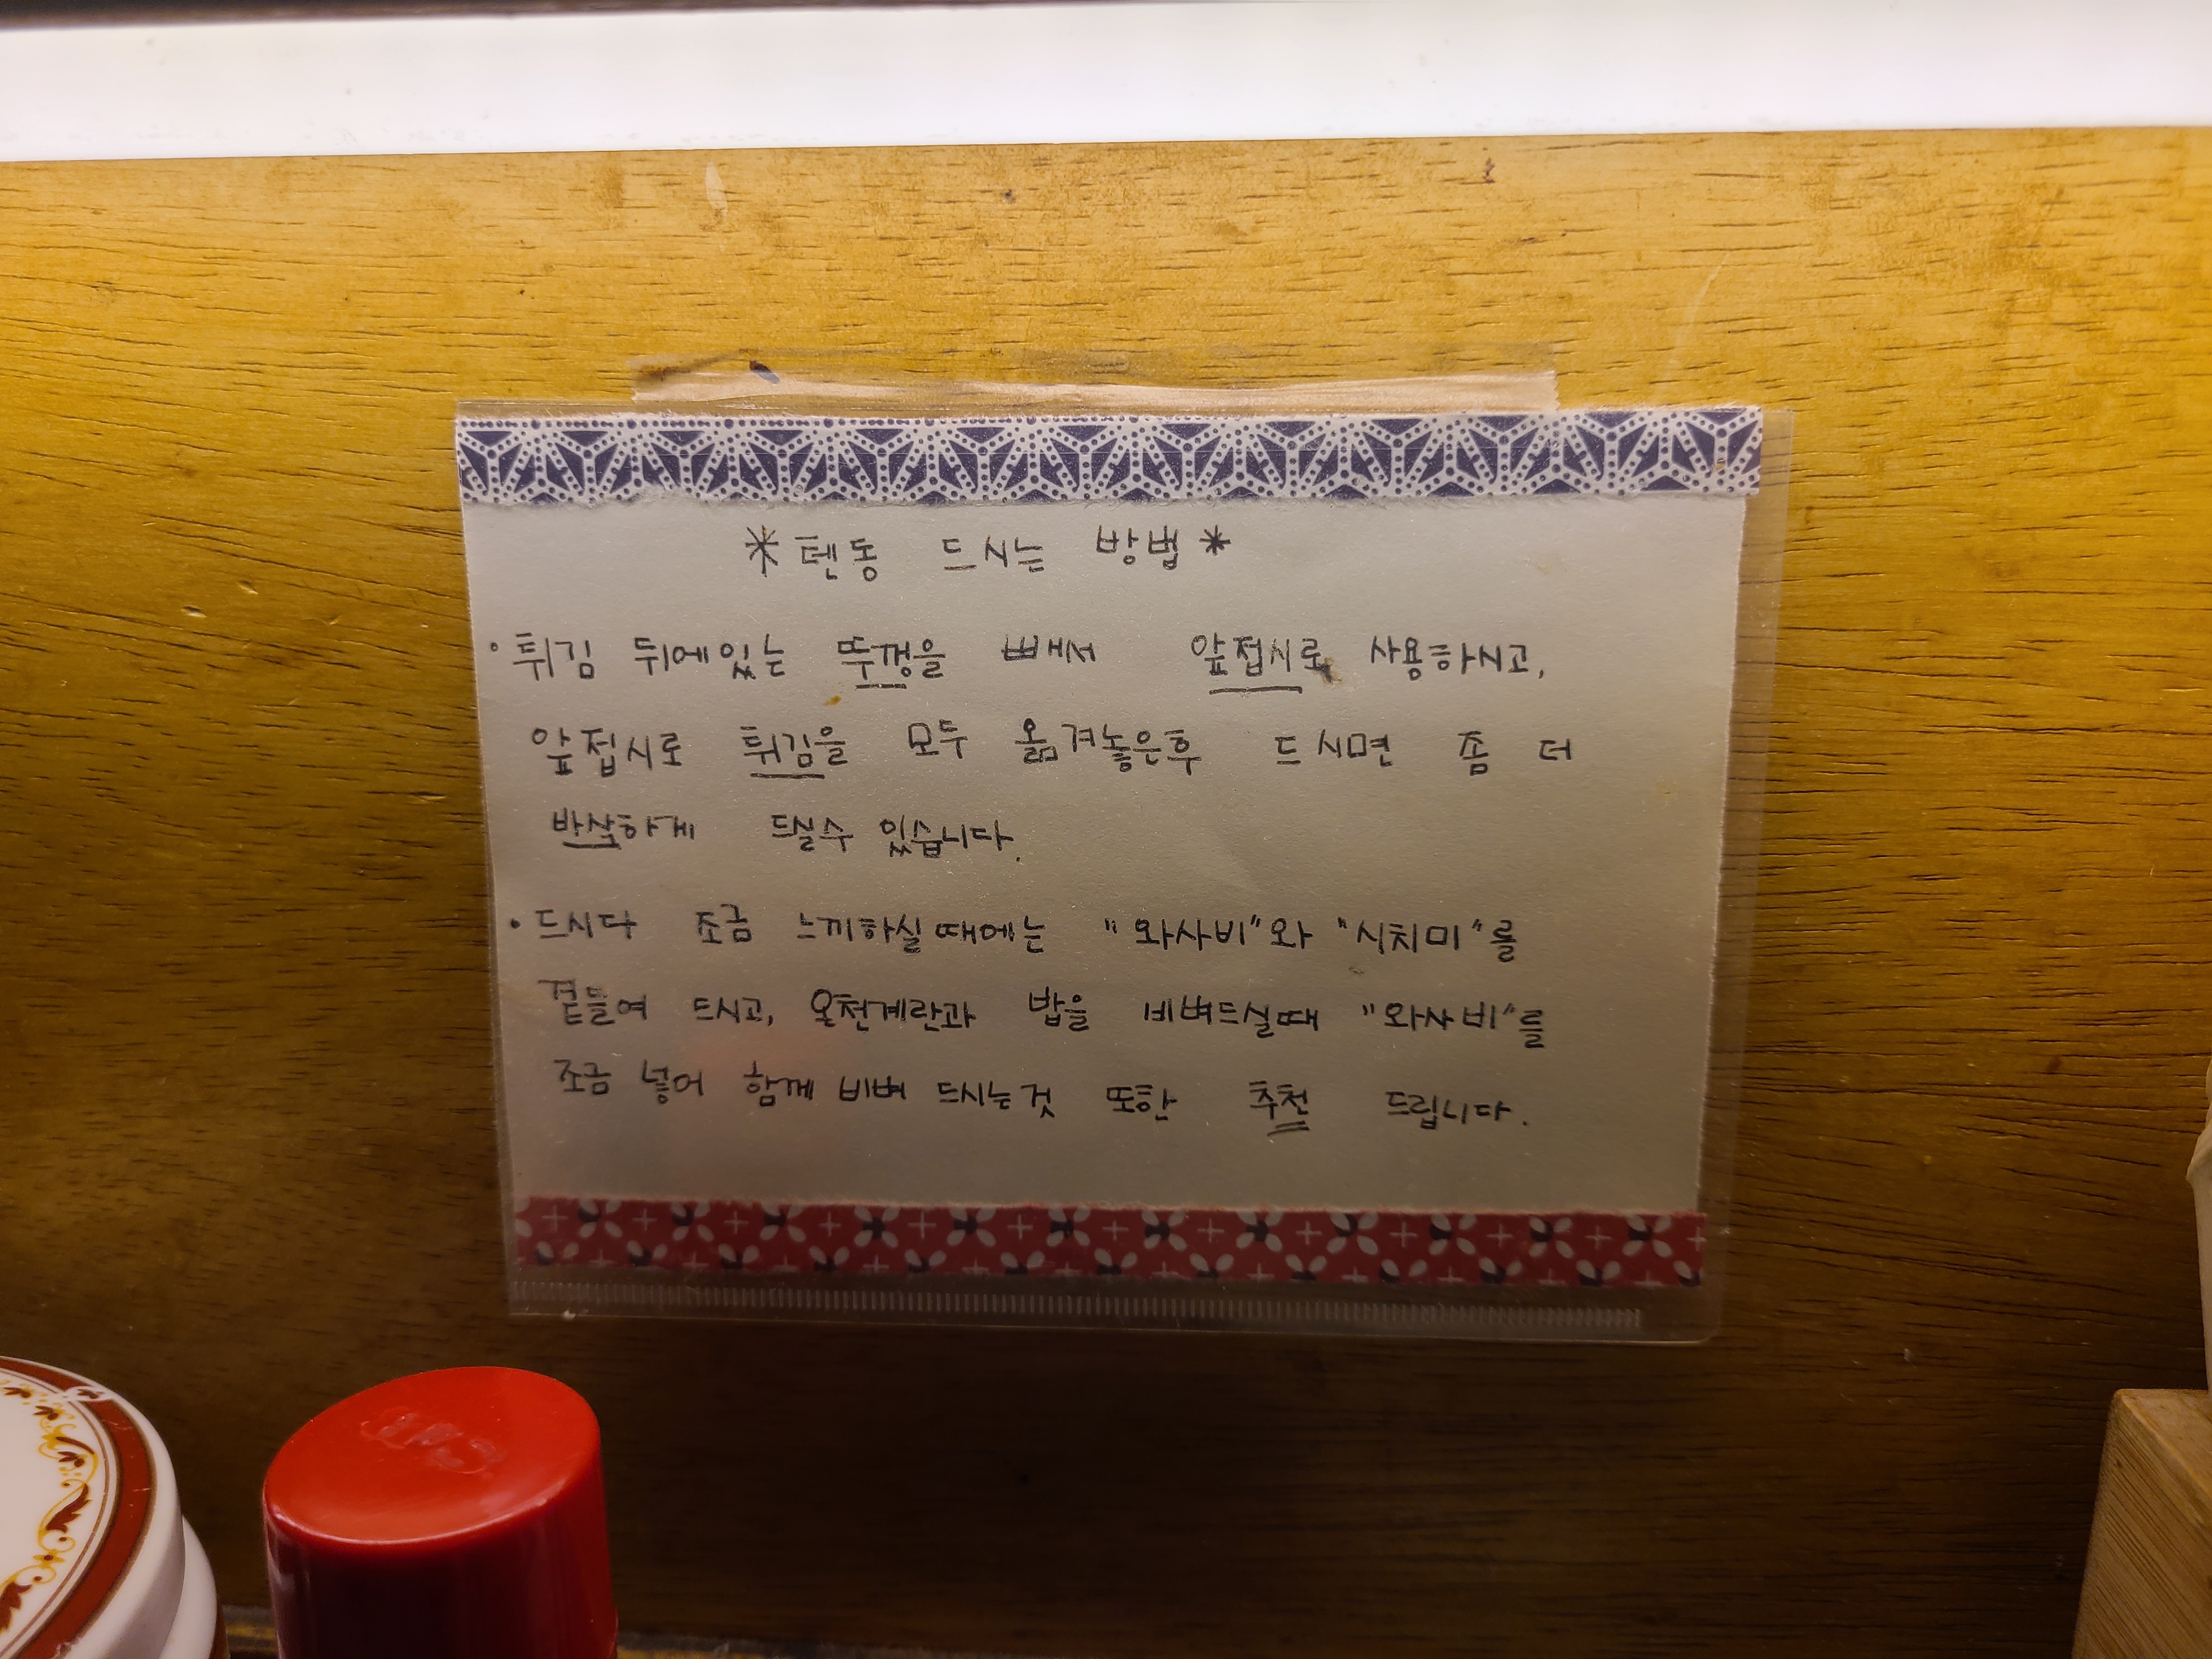 *텐동 드시는 방법*
• 튀김 뒤에있는 뚜껑을 빼서 앞접시로 사용하시고,
앞접시로 튀김을 모두 옮겨놓은후 드시면 좀 더
바삭하게 드실수 있습니다.
• 드시다 조금 느끼하실때에는 "와사비"와 "시치미"를
곁들여 드시고, 온천계란과 밥을 비벼드실때 "와사비"를
조금 넣어 함께 비벼 드시는것 또한 추천 드립니다.